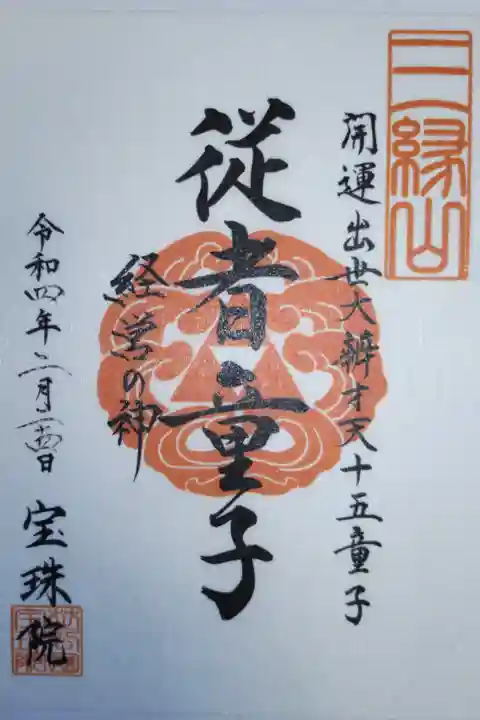 三縁山
開運出世大辨才天十五童子
従者童子
経営の神
令和四年二月一四日
宝珠院